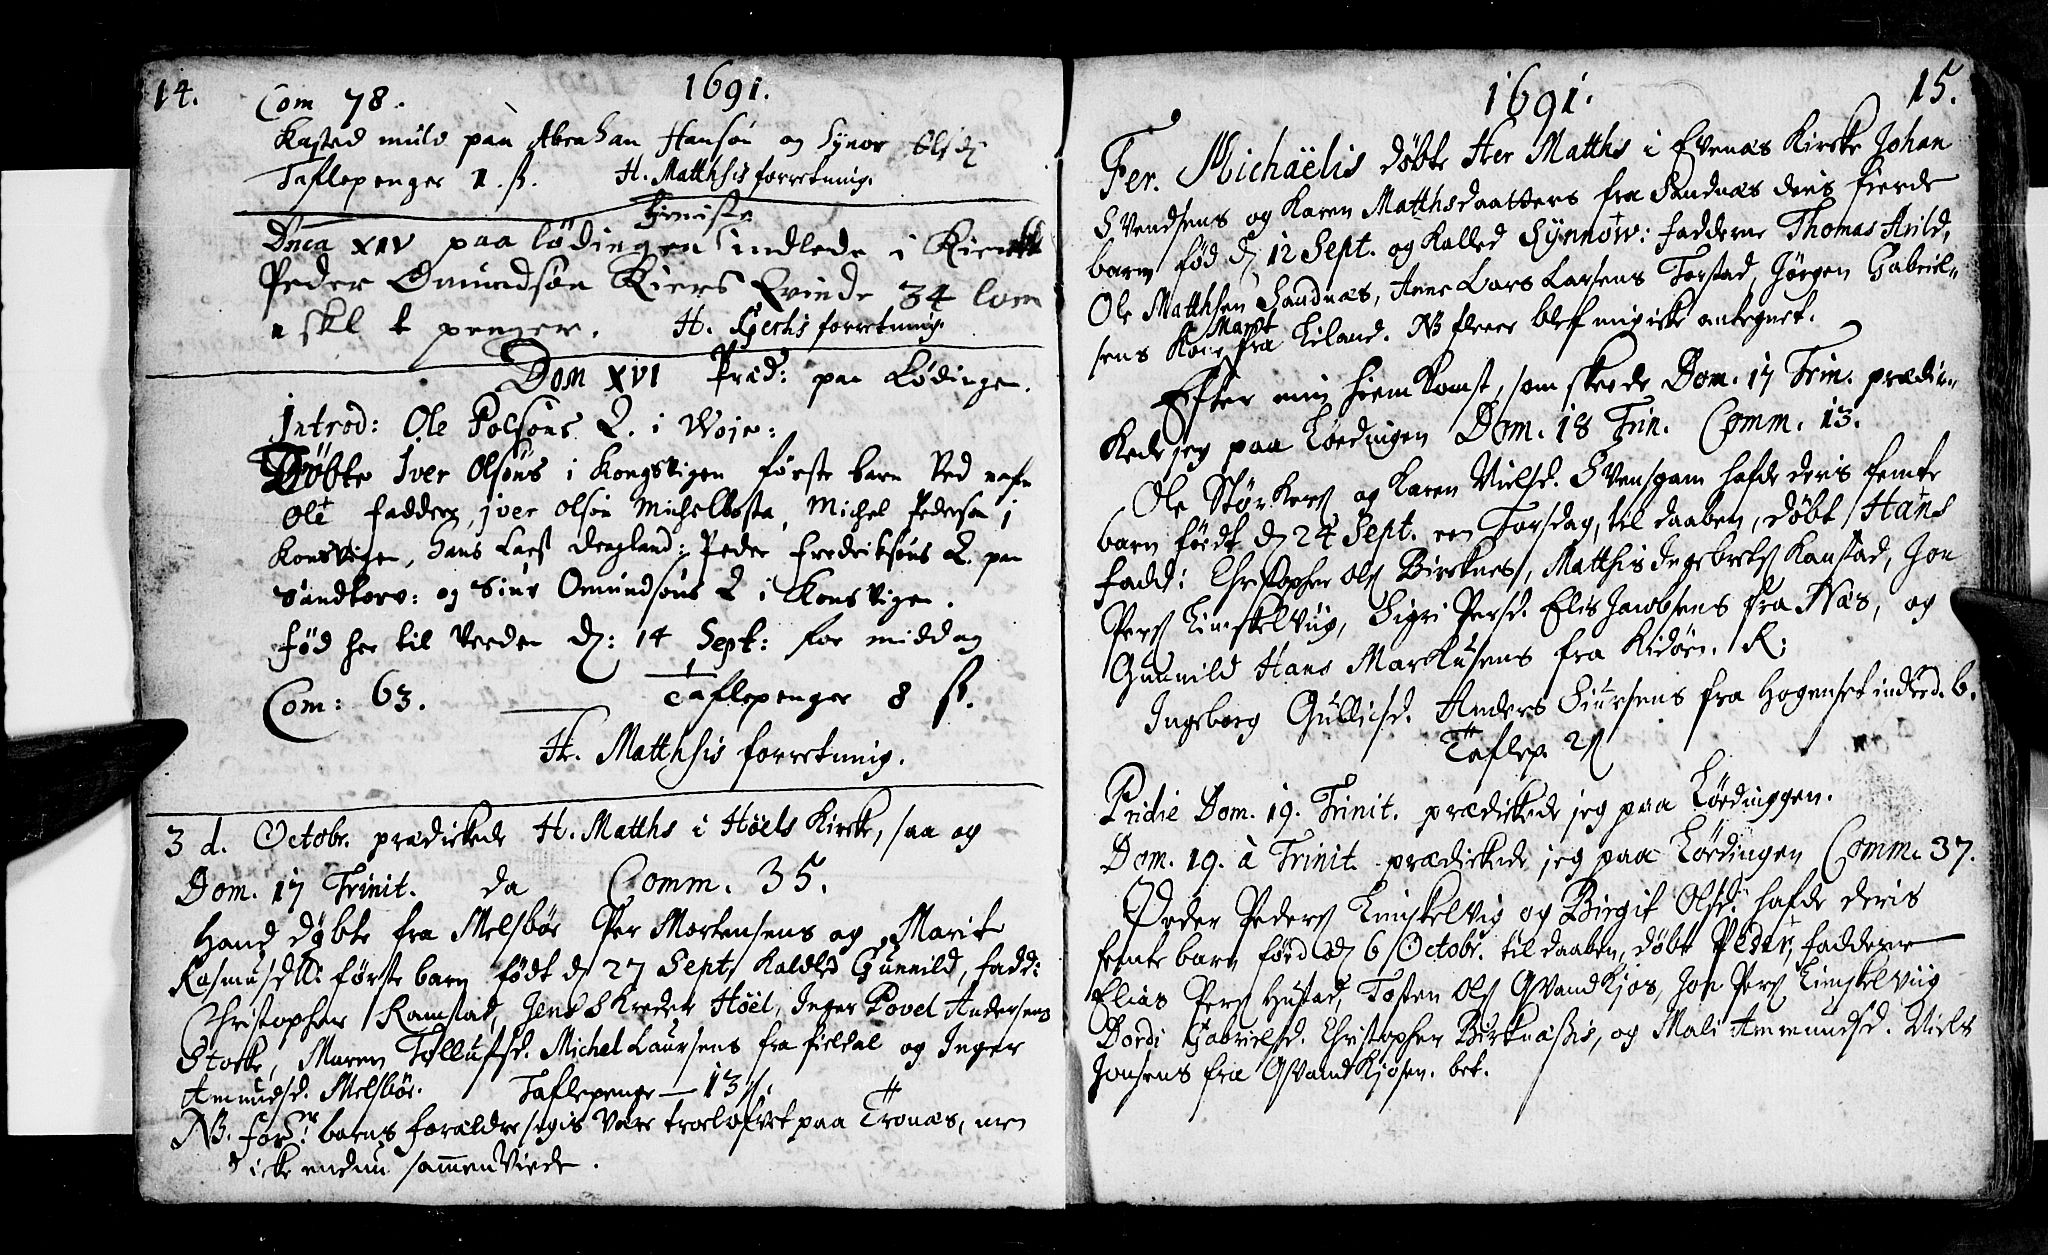 14.
1691.
Com 78.
Kasted muld paa Abraham Hansøn og Synov Olsd
Taflepenger 1. ß. H. Matthsis forretning.
tieniste
Dnca XIV paa lødingen indlede i Kircke
Peder Omundsøn Kiers Qvinde 34 Com
skl t penger. H. Gerts forretning.
Dom XVI Præd: paa Lødingen.
Introd: Ole Polsøns Q. i Woje:
Døbte Iver Olsøns i Kongsvigen første barn ved nafn
Ole Faddere, iver olsøn Michelbosta, Michel Pedersøn i
Konsvigen, Hans Lars Dragland: Peder Fredriksøns Q. paa
Sandtorv: og Siur Omundsøns Q i Konsvigen.
Fød her til Verden D: 14 Sept: for middag
Com: 63. Taflepenger 8 ß.
H. Matthsis forretning.
3 d. Octobr. prædickede H. Matths i Høels Kircke, saa og
Dom. 17 Trinit. da Comm. 35.
Hand døbte fra Melsbøe Per Mortensens og Marite
Rasmusdtt: første barn født d 27 Sept, Kalded Gunnild, fadd:
Christopher Ramstad, Jens Skreder Høel, Inger Povel Andersens
Stocke, Maren Tollufsd. Michel Laursens fra fieldal og Inger
Amundsd. Melsbøe. Taflepenge — 13 ß.
NB. forn: barns forældre sigis være troelofvet paa Tronæs, men
icke endnu sammenViede.
1691.
15.
Fer. Michaëlis døbte Her Matths i Evenæs Kircke Johan
Svendsens og Karen Matthsdaatters fra Sandnæs deris fierde
barn fød d 12 Sept. og Kalled Synnøw: fadderne Thomas Arild,
Ole Matthsen Sandnæs, Anne Lars Larsens Torstad, Jørgen Gabriel-
sens Kone Marit fra Liland. NB fleere blef mig icke antegnet.
Efter min hiemkomst, som skeede Dom. 17 Trin. prædic-
kede jeg paa Løedingen Dom. 18 Trin. Comm. 13.
Ole Størkers og Karen Nielsd. Svensgam hafde deris femte
barn født d 24 Sept. een Torsdag, til daaben, døbt Hans
Fadd: Christopher Ols Bircknes, Matthis Ingebrets Kanstad, Jon
Pers Kinskelviig, Sigri Persd. Elis Jacobsens fra Næs, og
Gunnild Hans Markusens fra Ridøen. R:
Ingeborg Gullicsd. Anders Siursens fra Hogenset indled. b.
Taflep. 2 ß
Pridie Dom. 19. Trinit. prædickede jeg paa Løedinggen.
Dom. 19. à Trinit. prædickede jeg paa Løedingen Comm. 37.
Peder Peders Kinskelvig og Birgit Olsd. hafde deris
femte barn fød d 6 Octobr. til daaben, døbt Peder, faddere
Elias Pers Hustad, Tosten Ols Qvandkjos, Jon Pers Kinskelviig
Dordi Gabrielsd. Christopher Bircknæssis, og Mali Ammundsd. Niels
Jonsens fra Qvandkjosen. bet.